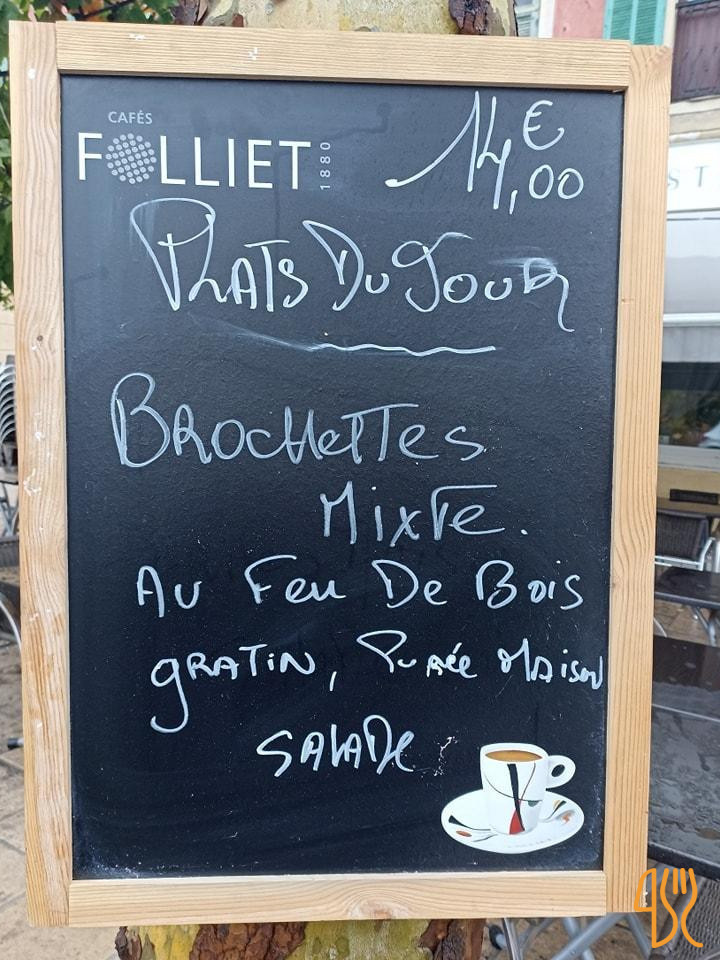 CAFÉS
FOLLIET 1880
14,00 €
PLATS DU JOUR
BROCHETTES
MIXTE.
AU FEU DE BOIS
GRATIN, PURÉE MAISON
SALADE
ST